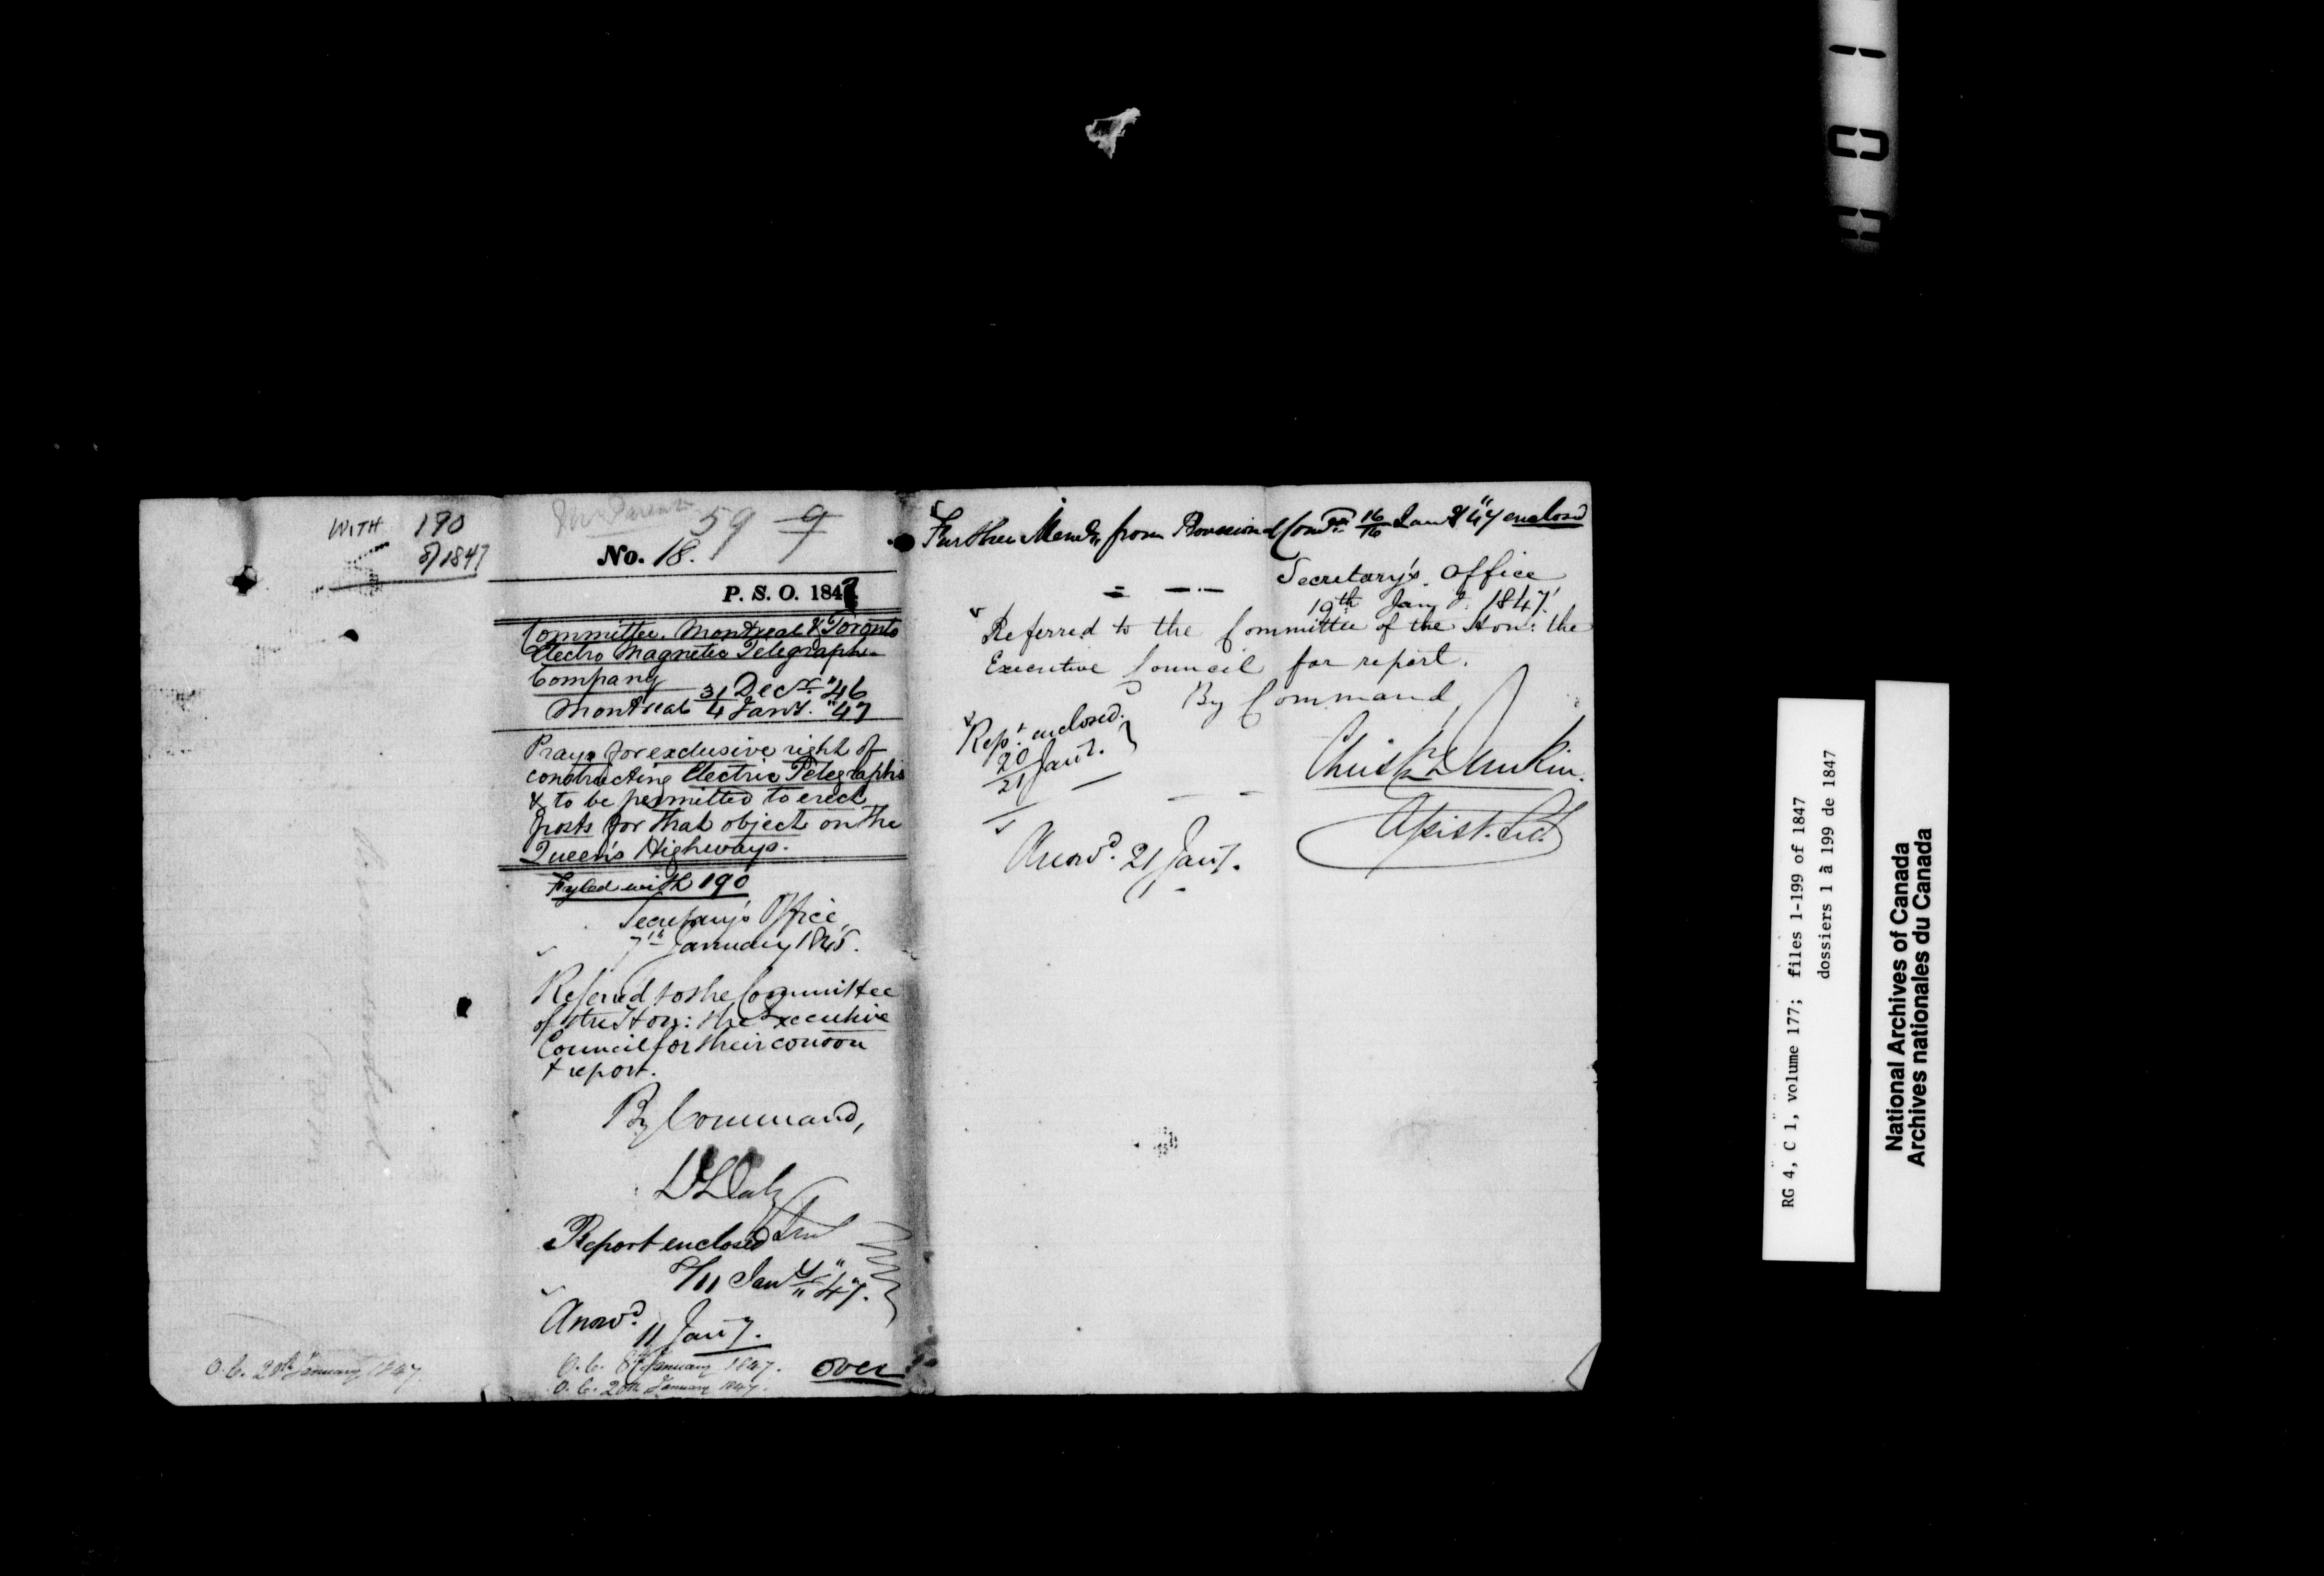 WITH 190
of 1847
O.C. 20th January 1847.
59 9
No. 18.
P. S. O. 1847
Committee. Montreal & Toronto
Electro Magnetic Telegraph
Company
31 Decr. "46
Montreal 4 Jany. "47
Prays for exclusive right of
constructing Electric Telegraphs
& to be permitted to erect
posts for that object on the
Queen's Highways.
Fyled with 190
Secretary's Office,
7th January 1845.
Referred to the Committee
of the Hon: the Executive
Council for their conson
& report.
By Command,
D Daly
Report enclosed
8/11 Jany "47.
Answd.
11 Jany.
O.C. 8th January 1847.
O.C. 20th January 1847.
over
Further Memo. from Provisional Comee 16/16 Jany "47 enclosed
Secretary's Office
19th Jany. 1847.
Referred to the Committee of the Hon: the
Executive Council for report.
By Command,
Rept. enclosed.
20/21 Jany.
Christr. Dunkin.
Assist. Sec.
Answd. 21 Jany.
RG 4, C 1, volume 177; files 1-199 of 1847
dossiers 1 à 199 de 1847
National Archives of Canada
Archives nationales du Canada